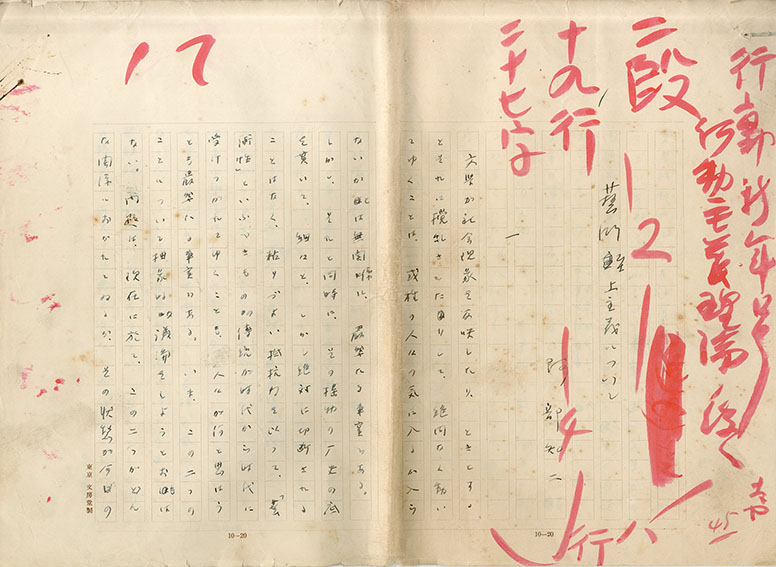 行動新年号
行動主義理論
二段
十九行
二十七字
12
14
行
45
17
藝術至上主義について
阿部知二
一
文学が社会現象を反映したり、ときとする
とそれに攪乱されたりして、絶間なく動い
てゆくことは、或種の人々の気に入るか入ら
ないかには無関係に、厳然たる事実である。
しかし、それと同時に、その推移の歴史の底
を貫いて、細々と、しかし絶対に切断される
ことはなく、粘りづよい抵抗力を以つて、「藝
術性」といふべきものが伝統が時代から時代に
受けつがれてゆくことも、人々が何と思はう
とも厳然たる事実である。いま、この二つの
ことについて抽象的な議論をしようとお
ない。問題は、現在に於て、この二つがどん
な関係におかれてゐるか、その状態が今日の
10—20
10—20
東京 文房堂製